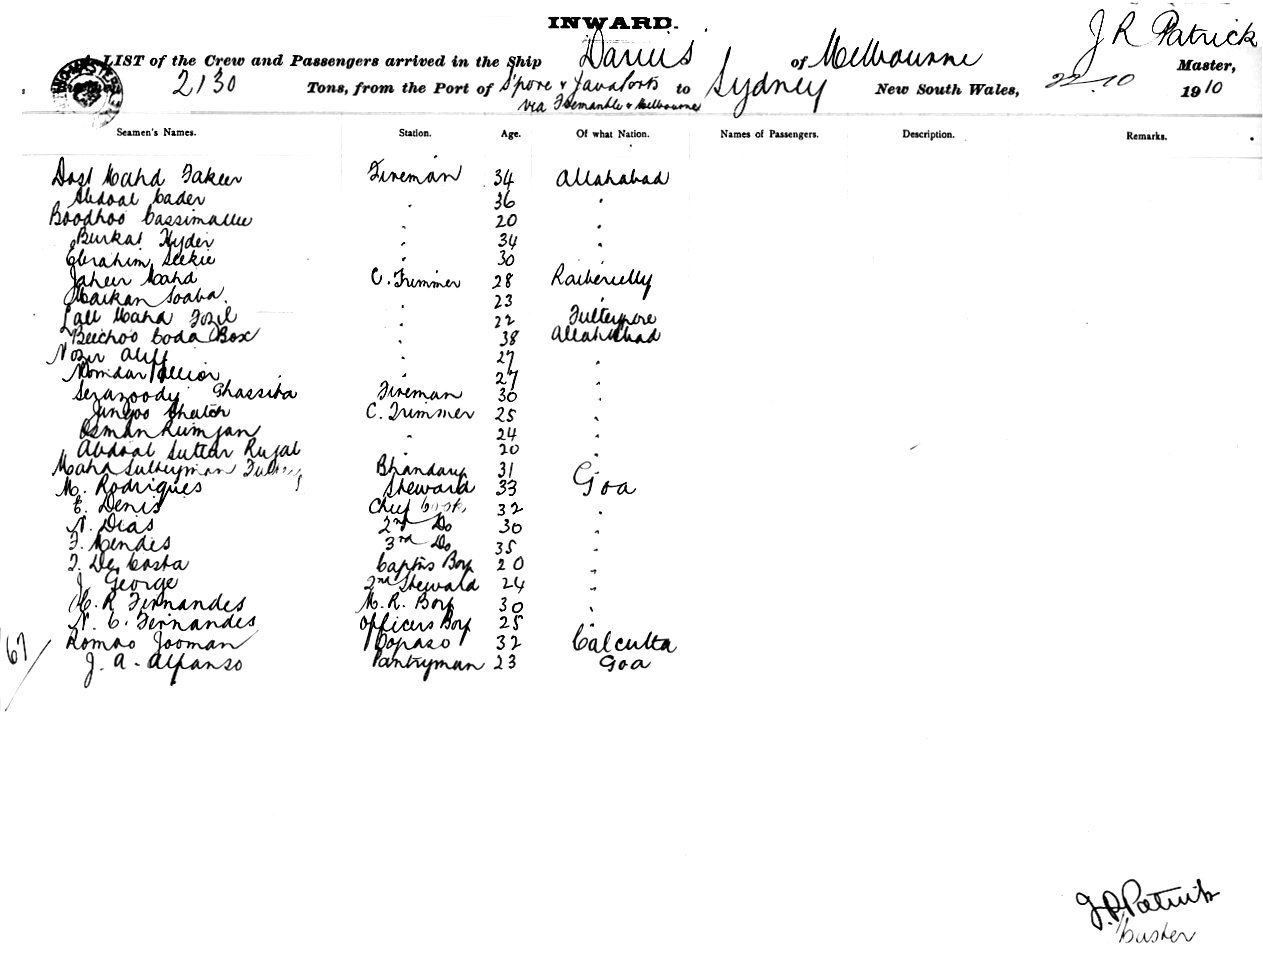 INWARD.
J R Patrick
LIST of the Crew and Passengers arrived in the Ship Darius of Melbourne Master,
2130 Tons, from the Port of S'pore & Java Ports to Sydney New South Wales, 22.10 1910
via Fremantle & Melbourne
Seamen's Names. Station. Age. Of what Nation. Names of Passengers. Description. Remarks.
Dost Mahd Fakeer Fireman 34 Allahabad
Abdoal Cader " 36 "
Boodhoo Cassimallee " 20 "
Burkat Hyder " 34 "
Ebrahim Seekie " 30 "
Jaheer Mahd C. Trimmer 28 Raiberielly
Maikan Soaba " 23 "
Lall Mahd Fozil " 22 Futteypore
Beechoo Coda Box " 38 Allahabad
Nozir Aliff " 27 "
Nomdar " 27 "
Serazoody Ghassita Fireman 30 "
Jingoo Shaikh C. Trimmer 25 "
Osman Rumjan " 24 "
Abdoal Suttar Rujab " 20 "
Mahd Sulleyman Bhandary 31 "
M. Rodrigues Steward 33 Goa
E. Denis Chief Cook 32 "
N. Dias 2nd Do 30 "
F. Mendes 3rd Do 35 "
F. De Costa Captns Boy 20 "
J. George 2nd Steward 24 "
C. R Fernandes M. R. Boy 30 "
N. C. Fernandes Officers Boy 25 "
Romao Jooman Topaso 32 Calcutta
67/
J. A. Alfanso Pantryman 23 Goa
J. R. Patrick
Master